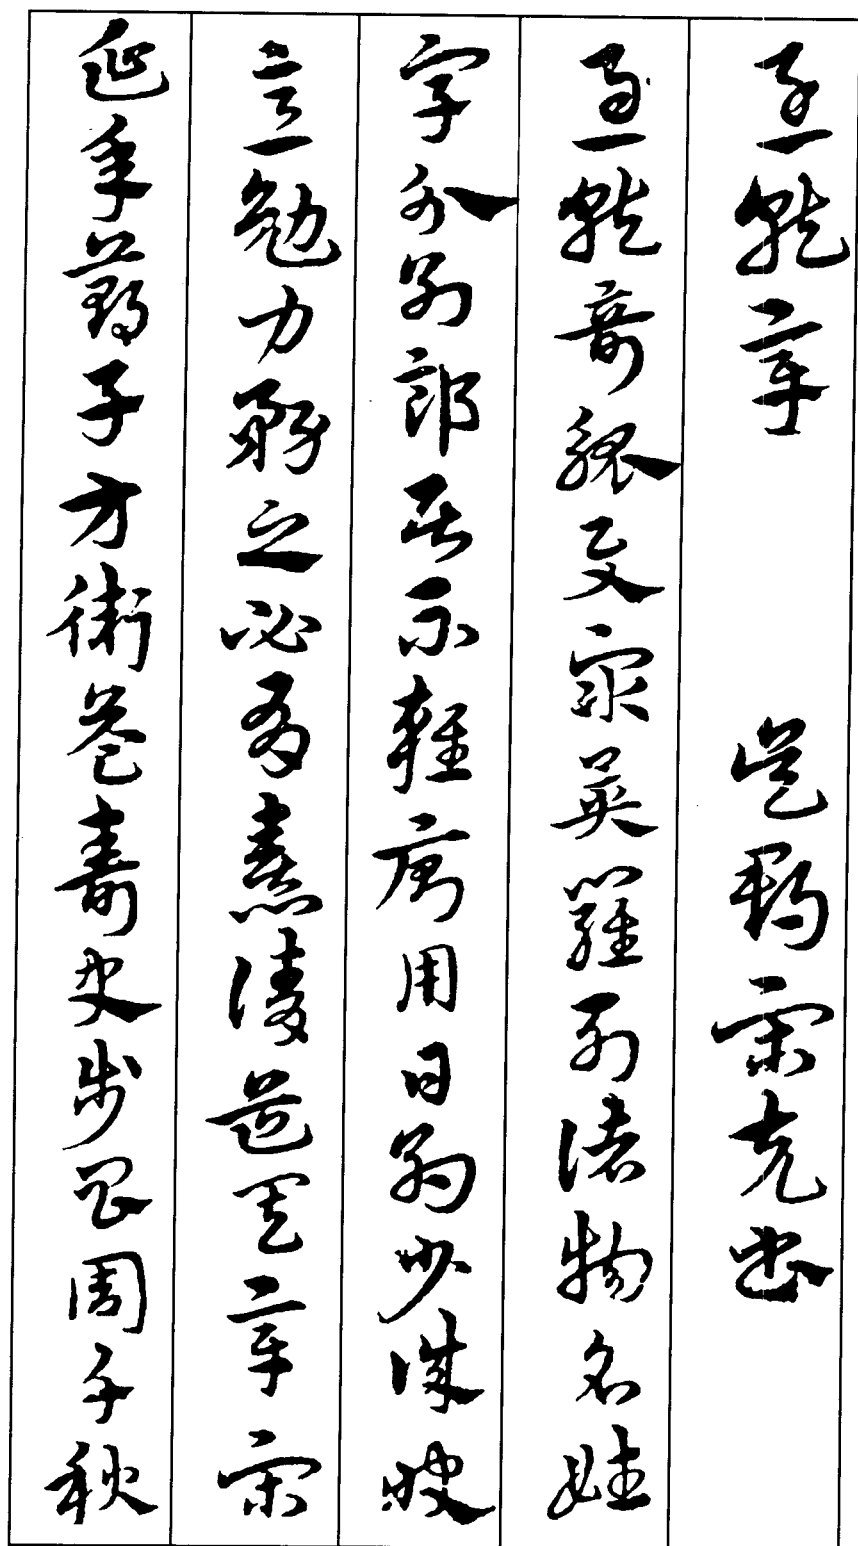 急就章 吳郡宋克書
急就奇觚與衆異羅列諸物名姓
字分別部居不雜廁用日約少誠快
意勉力務之必有憙請道其章宋
延年鄭子方衛益壽史步昌周千秋